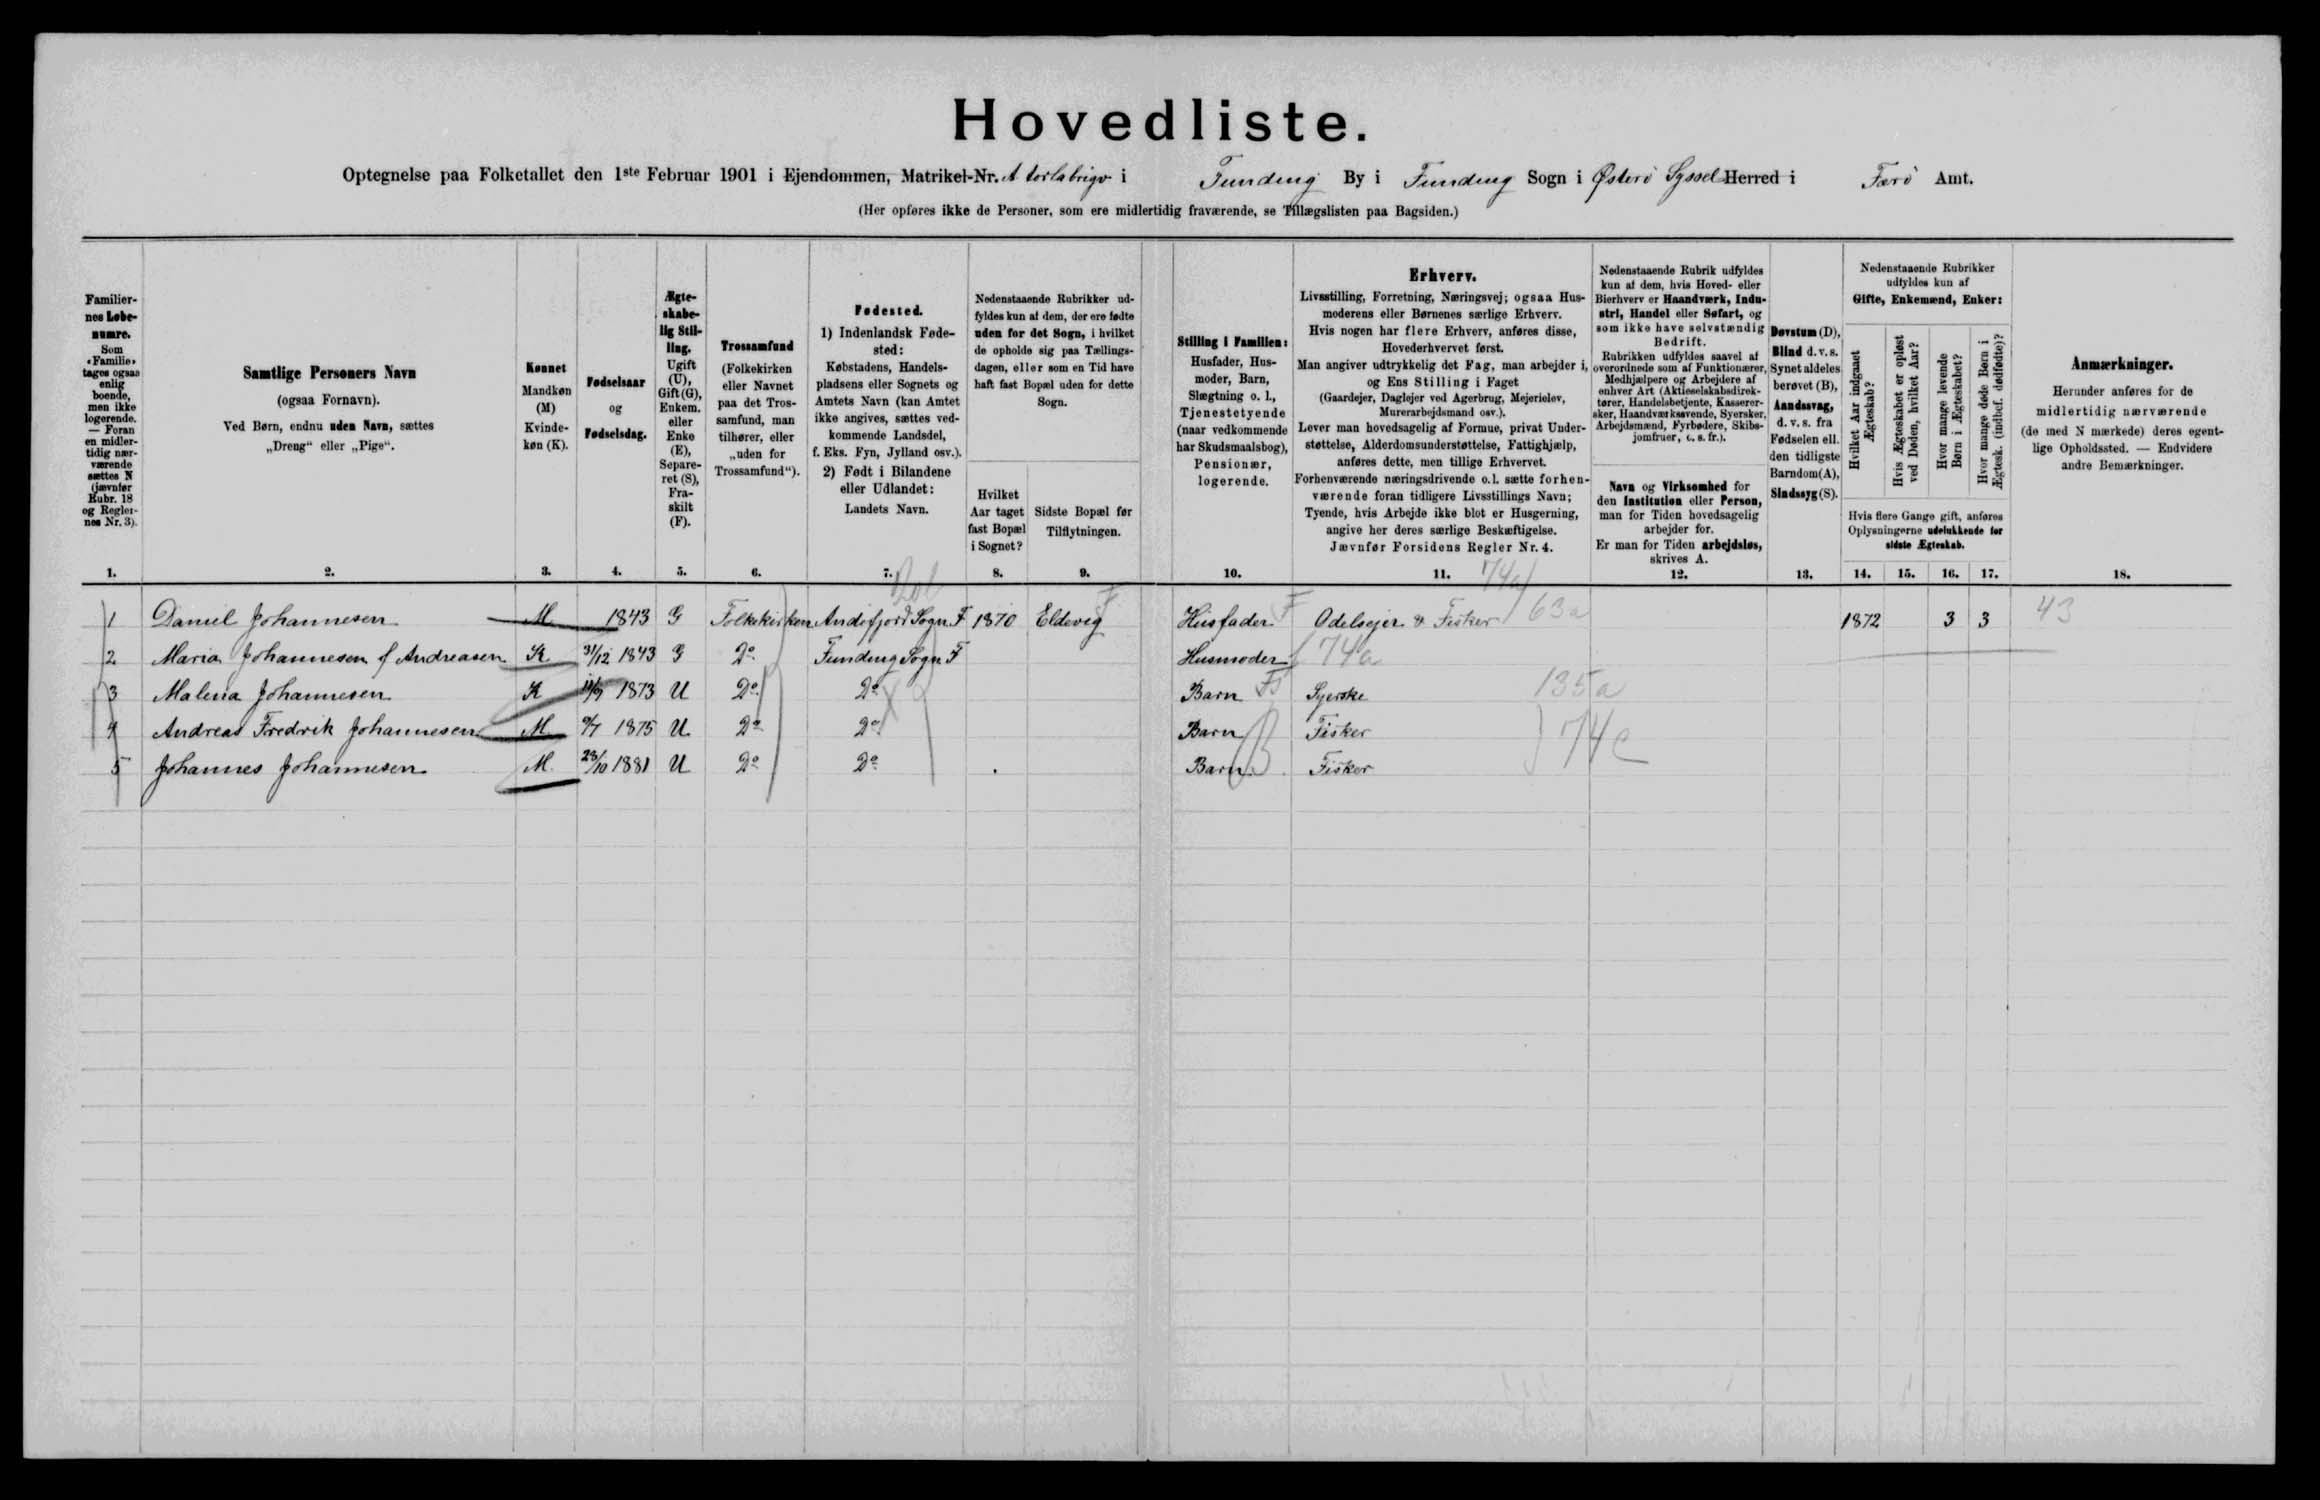 Hovedliste.
Optegnelse paa Folketallet den 1ste Februar 1901 i Ejendommen, Matrikel-Nr. i Funding By i Funding Sogn i Østerö Syssel Herred i Færö Amt.
(Her opføres ikke de Personer, som ere midlertidig fraværende, se Tillægslisten paa Bagsiden.)
Familiernes Løbenumre.
Som «Familie» tages ogsaa enlig boende, men ikke logerende. — Foran en midlertidig nærværende sættes N (jævnfør Rubr. 18 og Reglernes Nr. 3).
Samtlige Personers Navn
(ogsaa Fornavn).
Ved Børn, endnu uden Navn, sættes
„Dreng“ eller „Pige“.
Kønnet
Mandkøn (M)
Kvindekøn (K).
Fødselsaar
og
Fødselsdag.
Ægteskabelig Stilling.
Ugift (U), Gift (G), Enkem. eller Enke (E), Separeret (S), Fraskilt (F).
Trossamfund
(Folkekirken eller Navnet paa det Trossamfund, man tilhører, eller „uden for Trossamfund“).
Fødested.
1) Indenlandsk Fødested:
Købstadens, Handelspladsens eller Sognets og Amtets Navn (kan Amtet ikke angives, sættes vedkommende Landsdel, f. Eks. Fyn, Jylland osv.).
2) Født i Bilandene eller Udlandet:
Landets Navn.
Nedenstaaende Rubrikker udfyldes kun af dem, der ere fødte uden for det Sogn, i hvilket de opholde sig paa Tællingsdagen, eller som en Tid have haft fast Bopæl uden for dette Sogn.
Hvilket Aar taget fast Bopæl i Sognet?
Sidste Bopæl før Tilflytningen.
Stilling i Familien:
Husfader, Husmoder, Barn, Slægtning o. l., Tjenestetyende (naar vedkommende har Skudsmaalsbog), Pensionær, logerende.
Erhverv.
Livsstilling, Forretning, Næringsvej; ogsaa Husmoderens eller Børnenes særlige Erhverv.
Hvis nogen har flere Erhverv, anføres disse, Hovederhvervet først.
Man angiver udtrykkelig det Fag, man arbejder i, og Ens Stilling i Faget
(Gaardejer, Daglejer ved Agerbrug, Mejerielev, Murerarbejdsmand osv.).
Lever man hovedsagelig af Formue, privat Understøttelse, Alderdomsunderstøttelse, Fattighjælp, anføres dette, men tillige Erhvervet.
Forhenværende næringsdrivende o. l. sætte forhenværende foran tidligere Livsstillings Navn;
Tyende, hvis Arbejde ikke blot er Husgerning, angive her deres særlige Beskæftigelse.
Jævnfør Forsidens Regler Nr. 4.
Nedenstaaende Rubrik udfyldes kun af dem, hvis Hoved- eller Bierhverv er Haandværk, Industri, Handel eller Søfart, og som ikke have selvstændig Bedrift.
Rubrikken udfyldes saavel af overordnede som af Funktionærer, Medhjælpere og Arbejdere af enhver Art (Aktieselskabsdirektører, Handelsbetjente, Kasserersker, Haandværkssvende, Syersker, Arbejdsmænd, Fyrbødere, Skibsjomfruer, o. s. fr.).
Navn og Virksomhed for den Institution eller Person, man for Tiden hovedsagelig arbejder for.
Er man for Tiden arbejdsløs, skrives A.
Døvstum (D), Blind d. v. s. Synet aldeles berøvet (B), Aandssvag, d. v. s. fra Fødselen ell. den tidligste Barndom (A), Sindssyg (S).
Nedenstaaende Rubrikker udfyldes kun af
Gifte, Enkemænd, Enker:
Hvilket Aar indgaaet Ægteskab?
Hvis Ægteskabet er opløst ved Døden, hvilket Aar?
Hvor mange levende Børn i Ægteskabet?
Hvor mange døde Børn i Ægtesk. (indbef. dødfødte)?
Hvis flere Gange gift, anføres Oplysningerne udelukkende for sidste Ægteskab.
Anmærkninger.
Herunder anføres for de midlertidig nærværende (de med N mærkede) deres egentlige Opholdssted. — Endvidere andre Bemærkninger.
1. 2. 3. 4. 5. 6. 7. 8. 9. 10. 11. 12. 13. 14. 15. 16. 17. 18.
74a
1 Daniel Johannesen M 1843 G Folkekirken Andefjord Sogn F 1870 Eldevig F Husfader F Odelsejer & Fisker 63a 1872 3 3 43
2 Maria Johannesen f Andreasen K 31/12 1843 G Do Funding Sogn F Husmoder 74a
3 Malena Johannesen K 1873 U Do Do Barn Syerske 135a
4 Andreas Fredrik Johannesen M 1875 U Do Do Barn Fisker
5 Johannes Johannesen M. 28/10 1881 U Do Do Barn B Fisker 74c